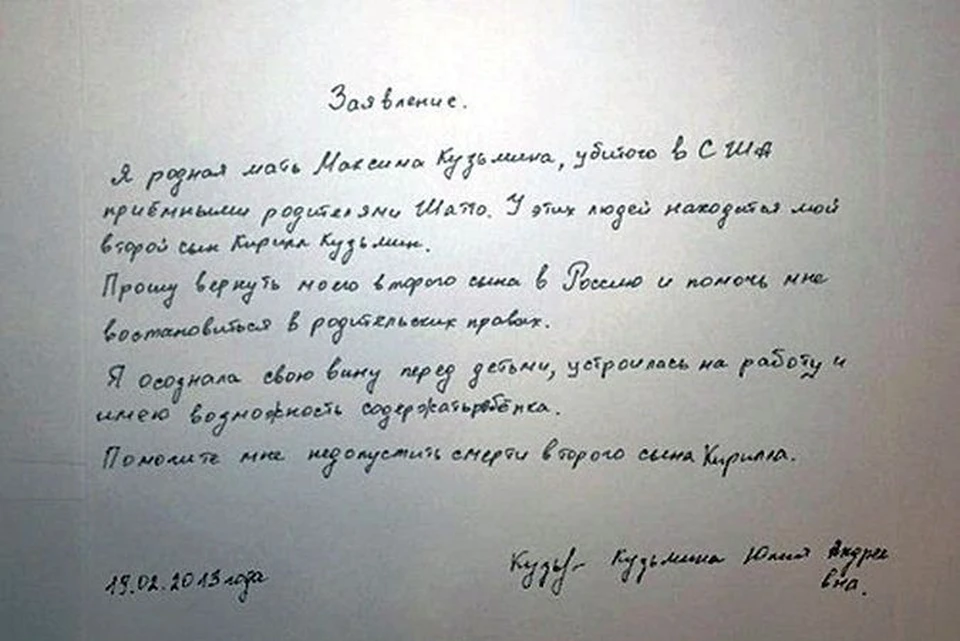 Заявление.
Я родная мать Максима Кузьмина, убитого в США
приёмными родителями Шатто. У этих людей находиться мой
второй сын Кирилл Кузьмин.
Прошу вернуть моего второго сына в Россию и помочь мне
востановиться в родительских правах.
Я осознала свою вину перед детьми, устроилась на работу и
имею возможность содержать ребёнка.
Помогите мне недопустить смерти второго сына Кирилла.
19.02.2013 года Кузьмина Юлия Андрее
вна.